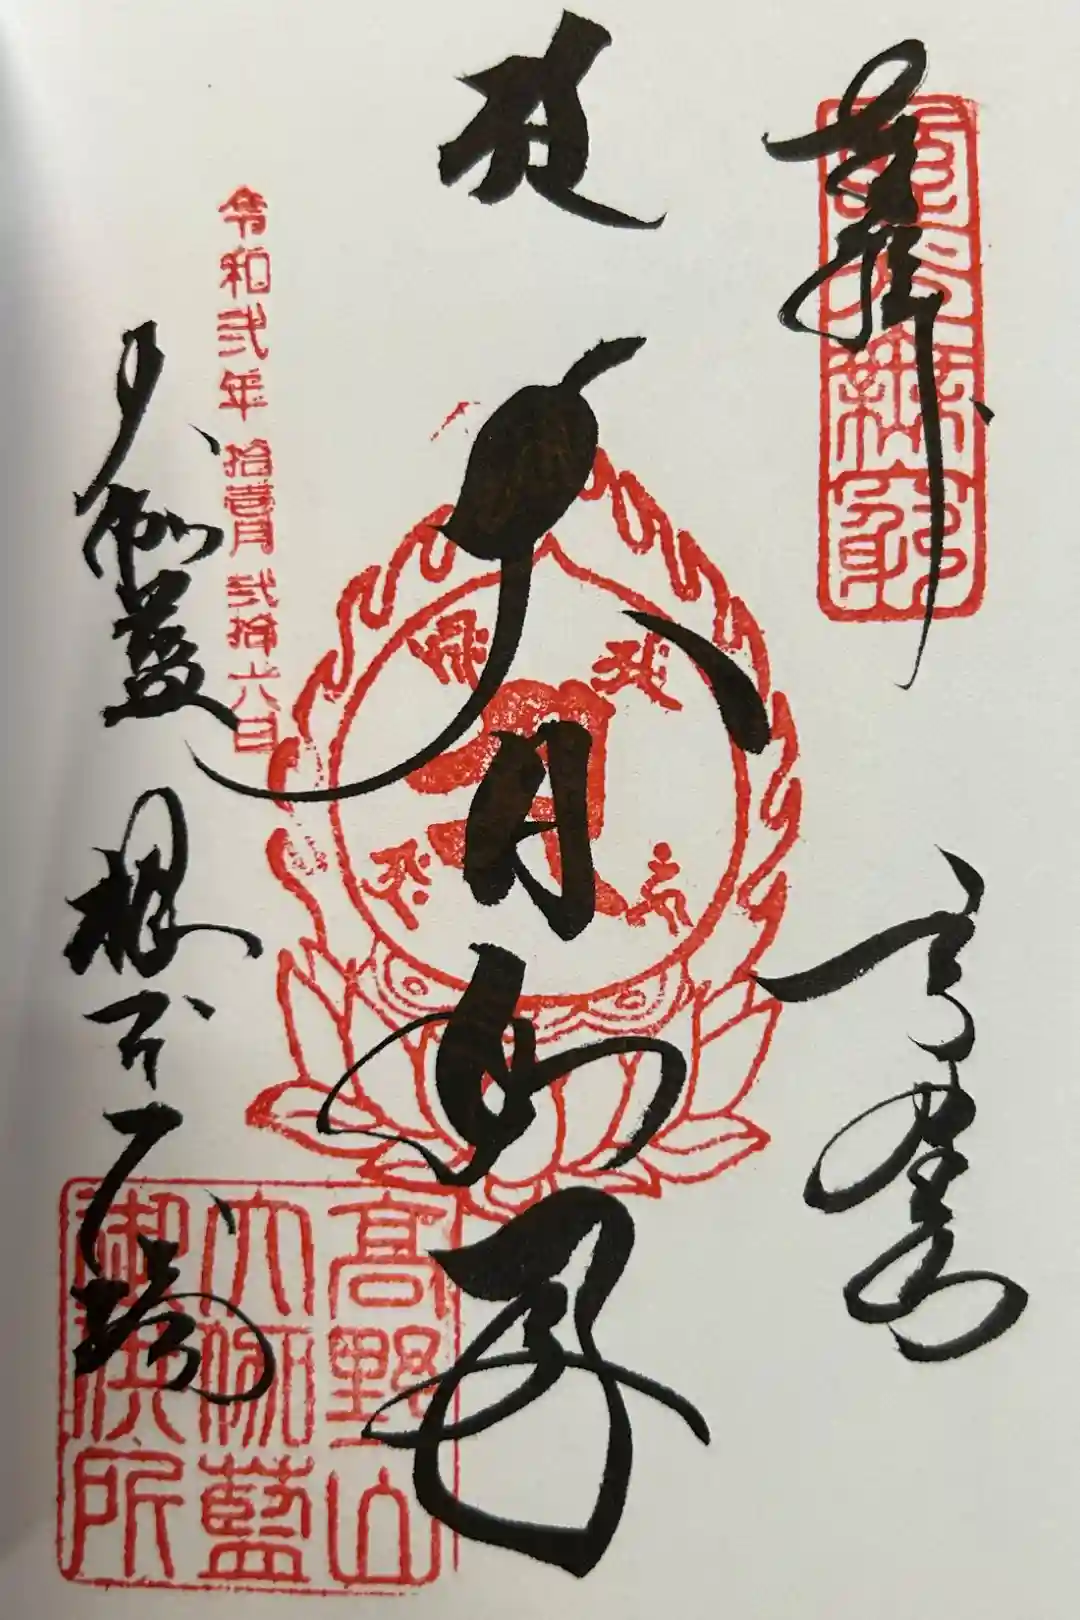 奉拜
高野山
大日如来
令和弐年 拾壹月 弐拾六日
大伽藍
根本大塔
高野山
大伽藍
御供所